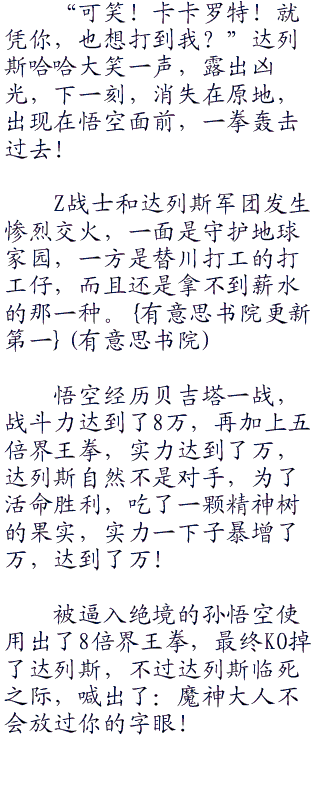 “可笑！卡卡罗特！就
凭你，也想打到我？”达列
斯哈哈大笑一声，露出凶
光，下一刻，消失在原地，
出现在悟空面前，一拳轰击
过去！
Z战士和达列斯军团发生
惨烈交火，一面是守护地球
家园，一方是替川打工的打
工仔，而且还是拿不到薪水
的那一种。{有意思书院更新
第一}(有意思书院)
悟空经历贝吉塔一战，
战斗力达到了8万，再加上五
倍界王拳，实力达到了万，
达列斯自然不是对手，为了
活命胜利，吃了一颗精神树
的果实，实力一下子暴增了
万，达到了万！
被逼入绝境的孙悟空使
用出了8倍界王拳，最终KO掉
了达列斯，不过达列斯临死
之际，喊出了：魔神大人不
会放过你的字眼！